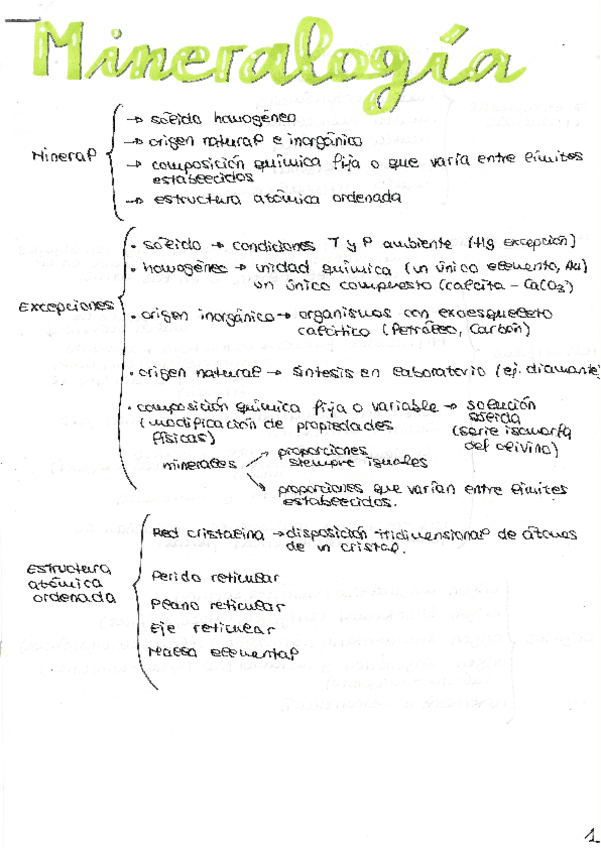 Mineralogía
→ sólido homogéneo
→ origen natural e inorgánico
Mineral
→ composición química fija o que varía entre límites
establecidos
→ estructura atómica ordenada
• sólido → condiciones T y P ambiente (Hg excepción)
• homogéneo → unidad química (un único elemento, Au)
un único compuesto (calcita - Ca(O₃²)
Excepciones
• origen inorgánico → organismos con exoesqueleto
calcítico (Petróleo, Carbón)
• origen natural → síntesis en laboratorio (ej. diamante)
• composición química fija o variable → solución
(modificación de propiedades sólida
físicas) (serie isomorfa
del olivino)
minerales
proporciones
siempre iguales
proporciones que varían entre límites
establecidos.
Red cristalina → disposición tridimensional de átomos
de un cristal.
Estructura
atómica
ordenada
Perido reticular
Plano reticular
Eje reticular
Malla elemental
1